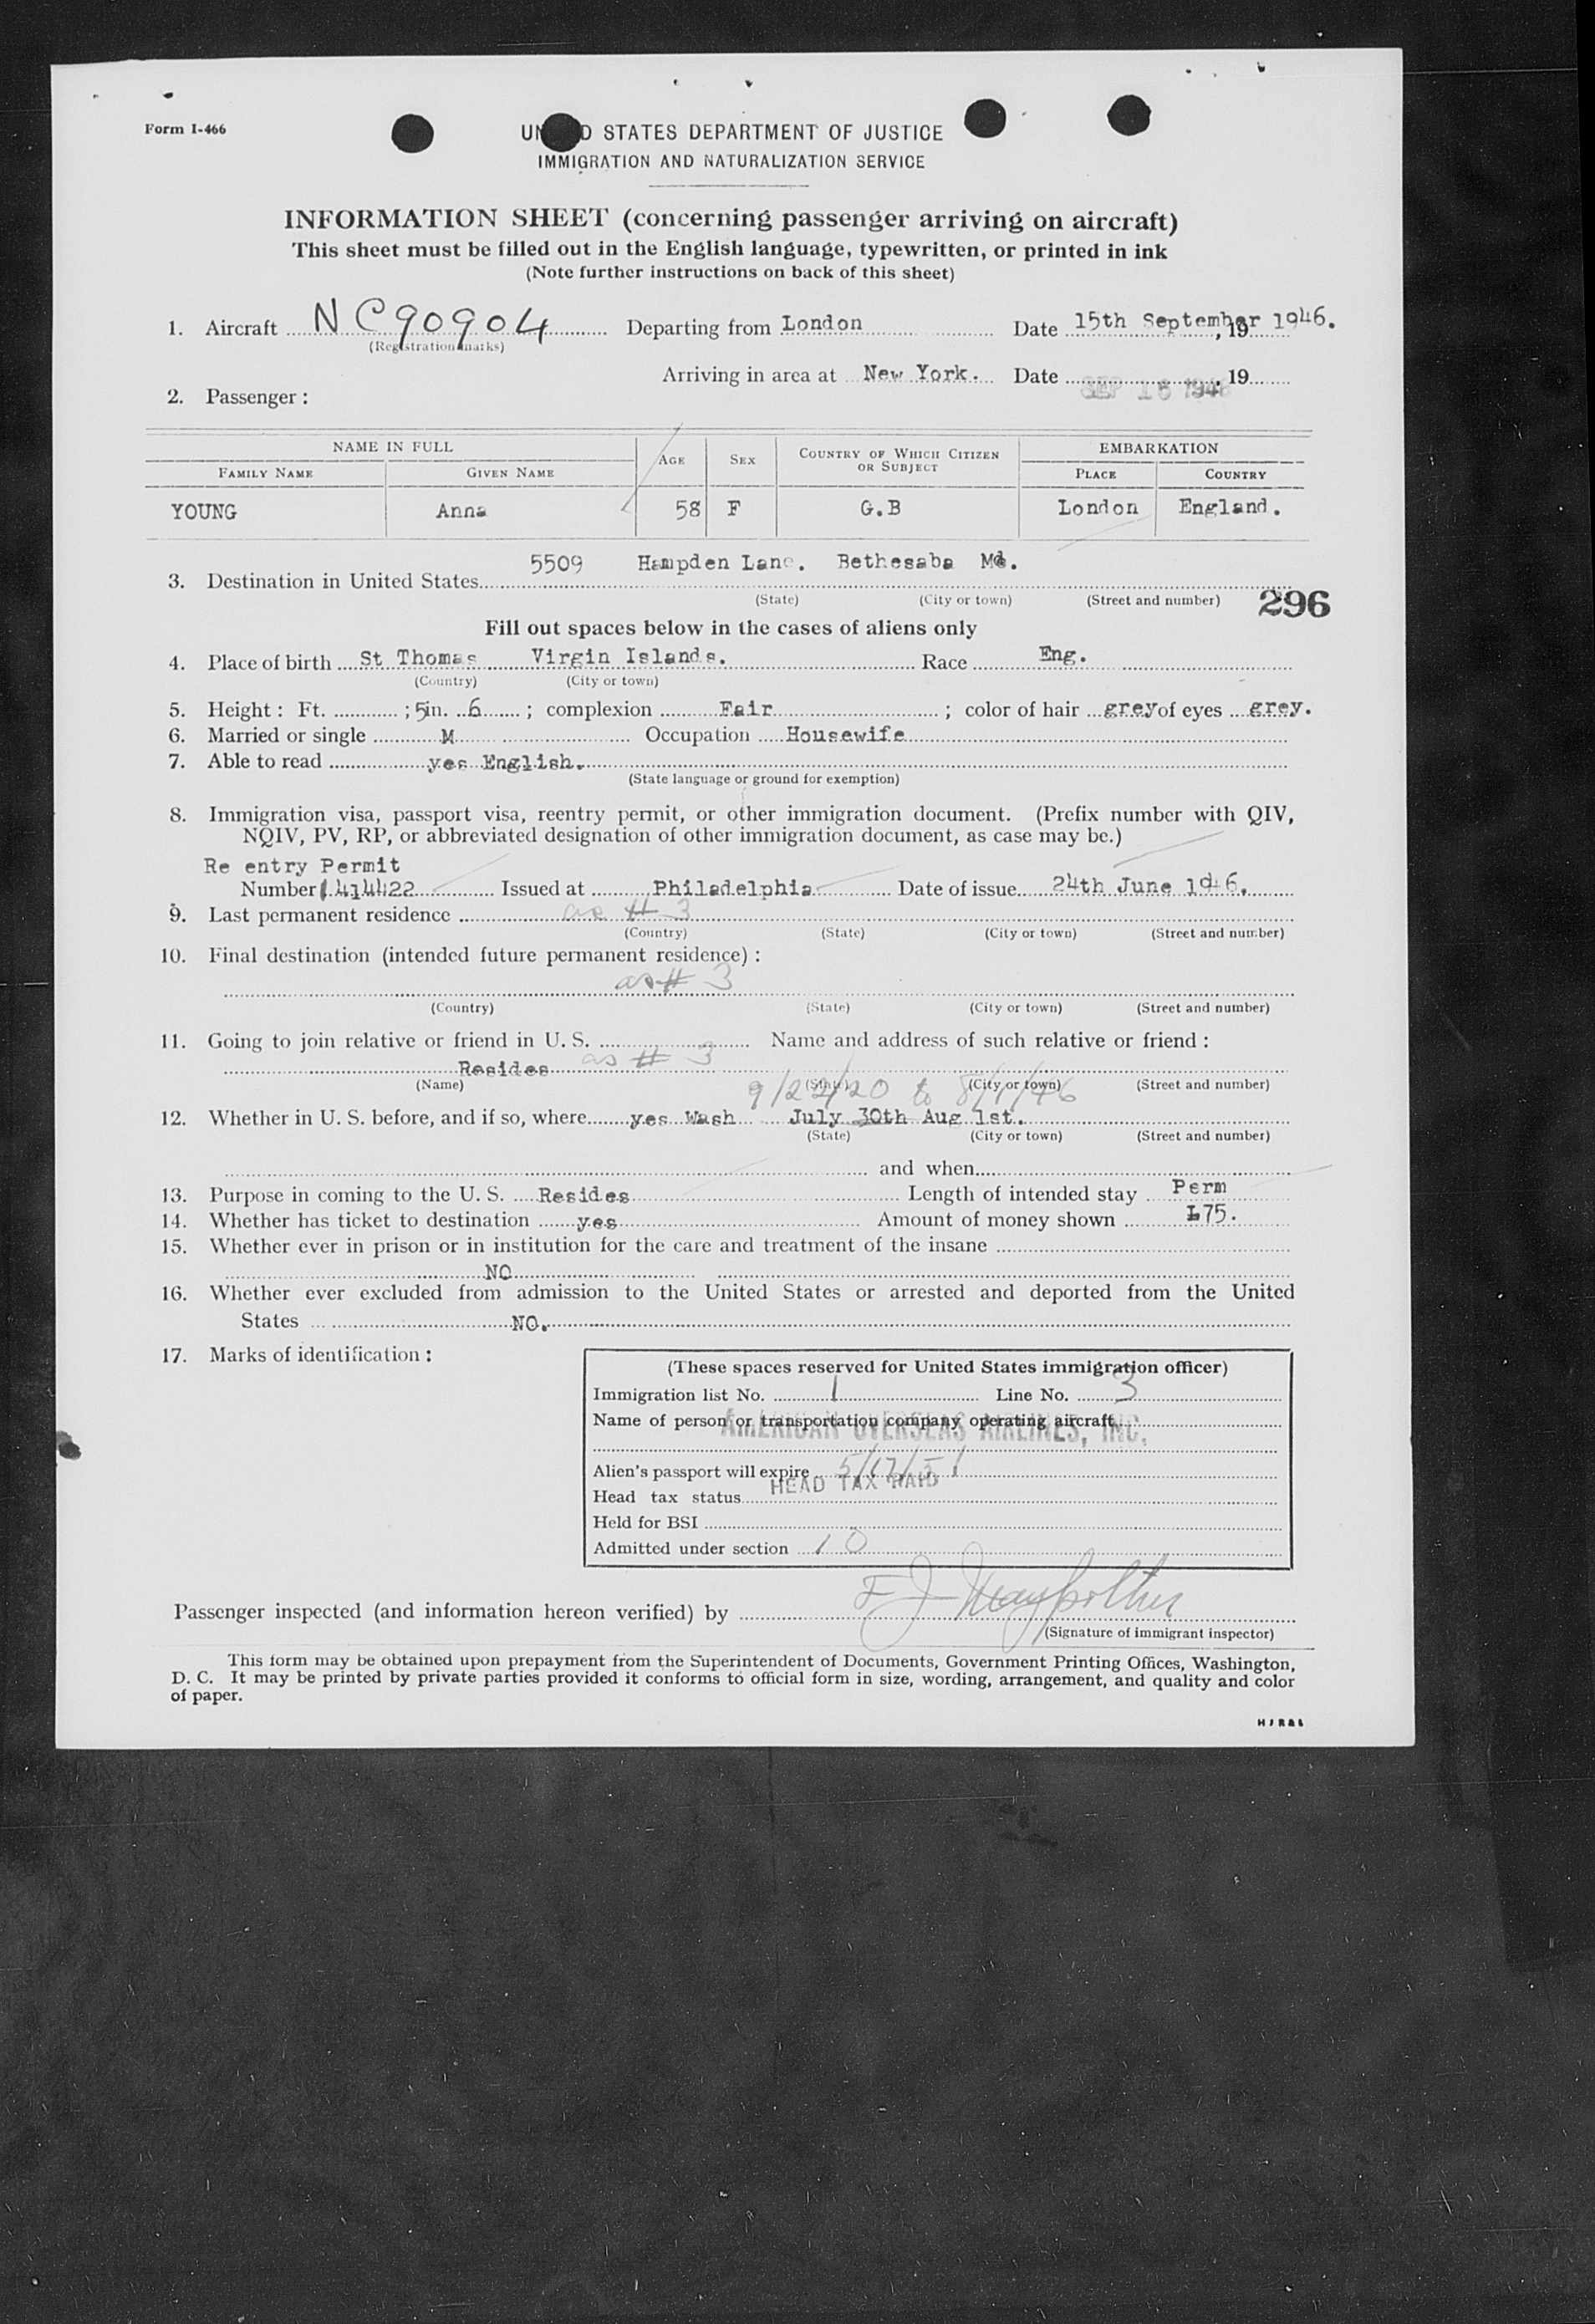 Form I-466
UN D STATES DEPARTMENT OF JUSTICE
IMMIGRATION AND NATURALIZATION SERVICE
INFORMATION SHEET (concerning passenger arriving on aircraft)
This sheet must be filled out in the English language, typewritten, or printed in ink
(Note further instructions on back of this sheet)
1. Aircraft NC90904 Departing from London Date 15th September, 19 1946.
(Registration marks)
Arriving in area at New York. Date SEP 16 1946, 19
2. Passenger:
NAME IN FULL AGE SEX COUNTRY OF WHICH CITIZEN OR SUBJECT EMBARKATION
FAMILY NAME GIVEN NAME PLACE COUNTRY
YOUNG Anna 58 F G.B London England.
5509 Hampden Lane. Bethesaba Md.
3. Destination in United States
(State) (City or town) (Street and number) 296
Fill out spaces below in the cases of aliens only
4. Place of birth St Thomas Virgin Islands. Race Eng.
(Country) (City or town)
5. Height: Ft. ; 5in. 6 ; complexion Fair ; color of hair grey of eyes grey.
6. Married or single M Occupation Housewife
7. Able to read yes English.
(State language or ground for exemption)
8. Immigration visa, passport visa, reentry permit, or other immigration document. (Prefix number with QIV,
NQIV, PV, RP, or abbreviated designation of other immigration document, as case may be.)
Re entry Permit
Number 1414422 Issued at Philadelphia Date of issue 24th June 1946.
9. Last permanent residence as # 3
(Country) (State) (City or town) (Street and number)
10. Final destination (intended future permanent residence):
as # 3
(Country) (State) (City or town) (Street and number)
11. Going to join relative or friend in U. S. Name and address of such relative or friend:
Resides as # 3
(Name) (State) (City or town) (Street and number)
9/22/20 to 8/1/46
12. Whether in U. S. before, and if so, where yes Wash July 30th Aug 1st.
(State) (City or town) (Street and number)
and when
13. Purpose in coming to the U. S. Resides Length of intended stay Perm
14. Whether has ticket to destination yes Amount of money shown £75.
15. Whether ever in prison or in institution for the care and treatment of the insane
NO
16. Whether ever excluded from admission to the United States or arrested and deported from the United
States NO.
17. Marks of identification:
(These spaces reserved for United States immigration officer)
Immigration list No. 1 Line No. 3
Name of person or transportation company operating aircraft
AMERICAN OVERSEAS AIRLINES, INC.
Alien's passport will expire 5/17/51
Head tax status HEAD TAX PAID
Held for BSI
Admitted under section 10
Passenger inspected (and information hereon verified) by F J
(Signature of immigrant inspector)
This form may be obtained upon prepayment from the Superintendent of Documents, Government Printing Offices, Washington,
D. C. It may be printed by private parties provided it conforms to official form in size, wording, arrangement, and quality and color
of paper.